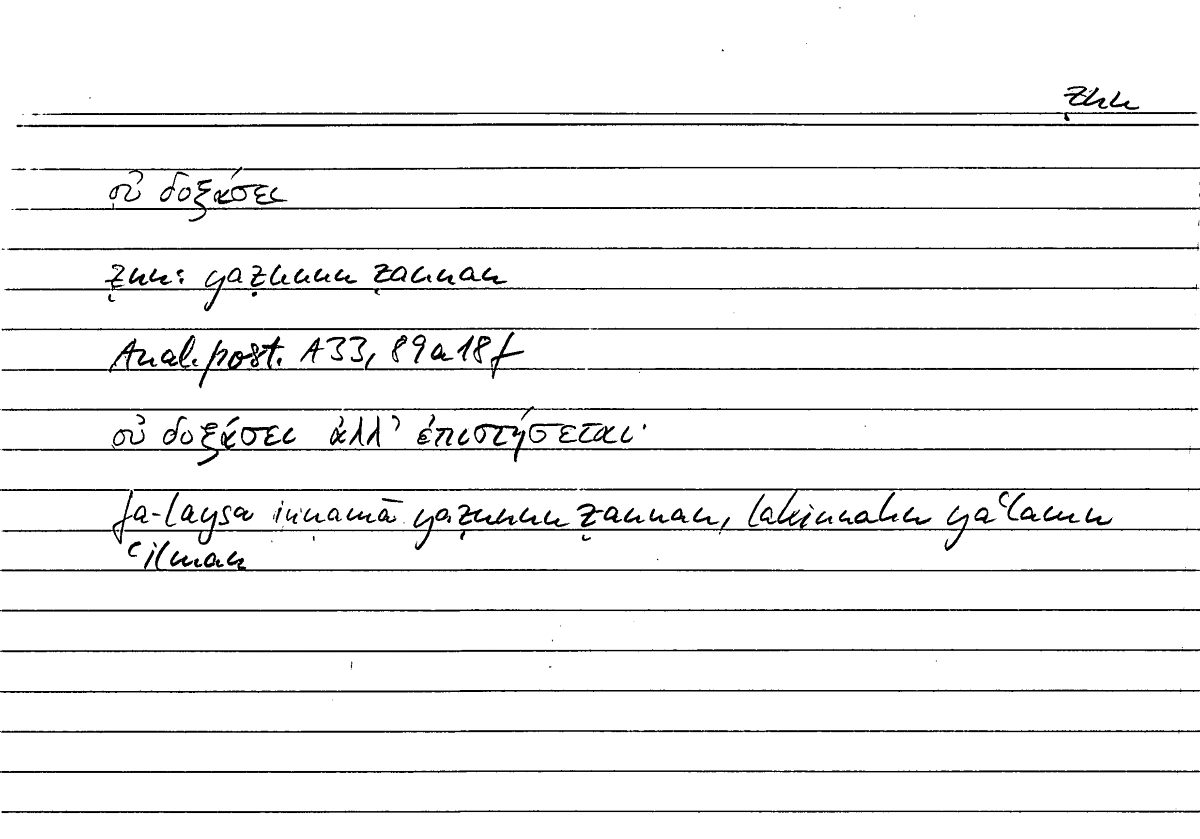 ẓnn
οὐ δοξάσει
ẓnn: yaẓunnu ẓannan
Anal. post. A33, 89a18f
οὐ δοξάσει ἀλλ’ ἐπιστήσεται·
fa-laysa innamā yaẓunnu ẓannan, lakinnahu yaʿlamu
ʿilman